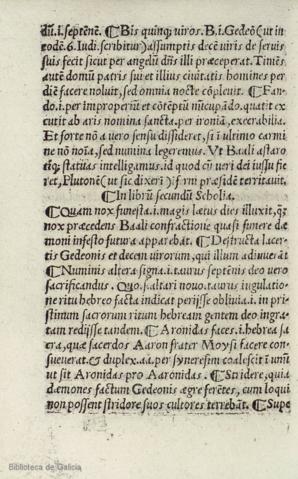 dũ.i.septenẽ. ¶Bis quinq; viros. B.i.Gedeõ(ut in
eodẽ.6. Iudi. scribitur) assumptis decẽ viris de servis
suis fecit sicut per angelũ dñs illi præceperat. Timẽs
autẽ domũ patris sui et illius civitatis homines per
diẽ facere noluit, sed omnia nocte cõplevit. ¶Fan-
do.i.per improperiũ et cõtẽptũ nũcupãdo. quatit ex
cutit ab aris nomina sancta. per ironiã, execrabilia.
Et forte nõ a vero sensu dissideret, si ĩ ultimo carmi
ne nõ noĩa, sed numina legeremus. Vt Baali astaro
tiq; statuas intelligamus. id quod cũ veri dei iussu fie
ret, Plutonẽ (ut sic dixerĩ) ĩfernі præsidẽ territavit.
¶In librũ secundũ Scholia.
¶Quam nox funesta.i.magis lætus dies illuxit, q̃
nox præcedens Baali confractione quasi funere dæ
moni infesto futura apparebat. ¶Destructa lacer-
tis Gedeonis et decem virorum, qui illum adiuverãt
¶Numinis altera signa.i.taurus septẽnis deo vero
sacrificandus. Quo.s.altari novo. taurus iugulatio-
ne ritu hebreo facta indicat perijsse oblivia.i. in pri-
stinum sacrorum ritum hebream gentem deo ingra-
tam redijsse tandem. ¶Aronidas faces.i.hebrea sa
cra, quæ sacerdos Aaron frater Moysi facere con-
sueverat. & duplex.aa.per syneresim coalescit ĩ unũ
ut sit Aronidas pro Aaronidas. ¶Stridere, quia
dæmones factum Gedeonis ægre ferẽtes, cum loqui
non possent stridore suos cultores terrebãt. ¶Supe
Biblioteca de Galicia